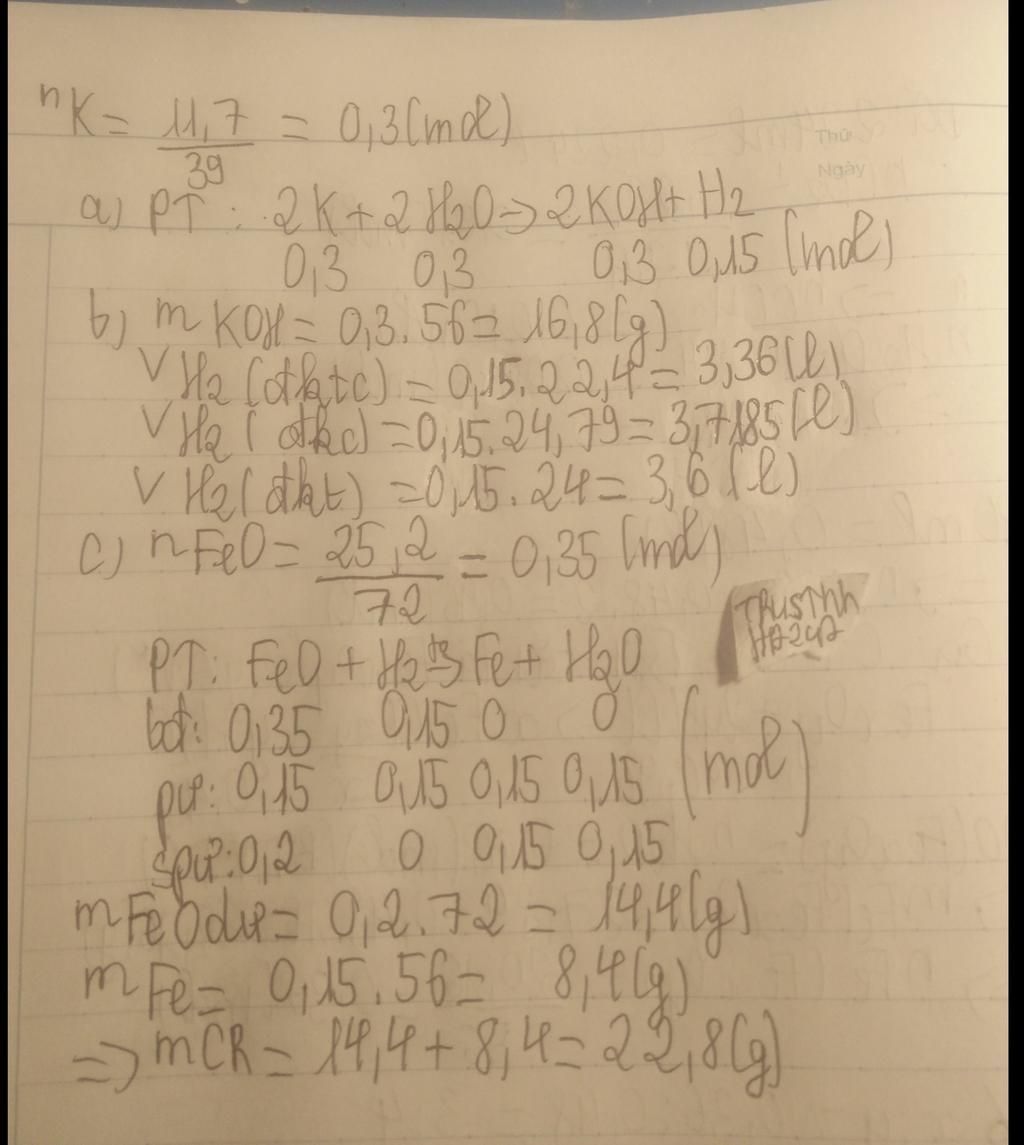 nK = 11,7/39 = 0,3 (mol)
Thứ
Ngày
a) PT: 2K + 2H2O → 2KOH + H2
0,3 0,3 0,3 0,15 (mol)
b) mKOH = 0,3.56 = 16,8 (g)
VH2 (đktc) = 0,15.22,4 = 3,36 (l)
VH2 (đkc) = 0,15.24,79 = 3,7185 (l)
VH2 (đkt) = 0,15.24 = 3,6 (l)
c) nFeO = 25,2/72 = 0,35 (mol)
PT: FeO + H2 → Fe + H2O
bđ: 0,35 0,15 0 0
pư: 0,15 0,15 0,15 0,15 (mol)
spư: 0,2 0 0,15 0,15
mFeO dư = 0,2.72 = 14,4 (g)
mFe = 0,15.56 = 8,4 (g)
=> mCR = 14,4 + 8,4 = 22,8 (g)